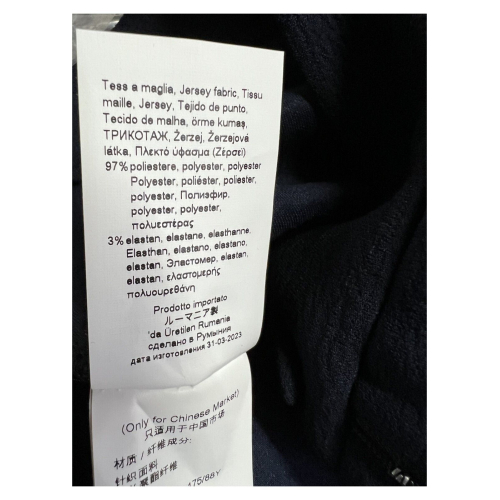 Tess a maglia, Jersey fabric, Tissu
maille, Jersey, Tejido de punto,
Tecido de malha, örme kumaş,
ТРИКОТАЖ, Žerzej, Žerzejová
látka, Πλεκτό ύφασμα (Ζέρσεϊ)
97% poliestere, polyester, polyester
Polyester, poliéster, poliester,
polyester, Полиэфир,
polyester, polyester,
πολυεστέρας
3% elastan, elastane, elasthanne,
Elasthan, elastano, elastano,
elastan, Эластомер, elastan,
elastan, ελαστομερής
πολυουρεθάνη
Prodotto importato
ルーマニア製
'da Üretilen Rumania
сделано в Румыния
дата изготовления 31-03-2023
(Only for Chinese Market)
只适用于中国市场
材质 / 纤维成分:
针织面料
聚酯纤维
A75/88Y